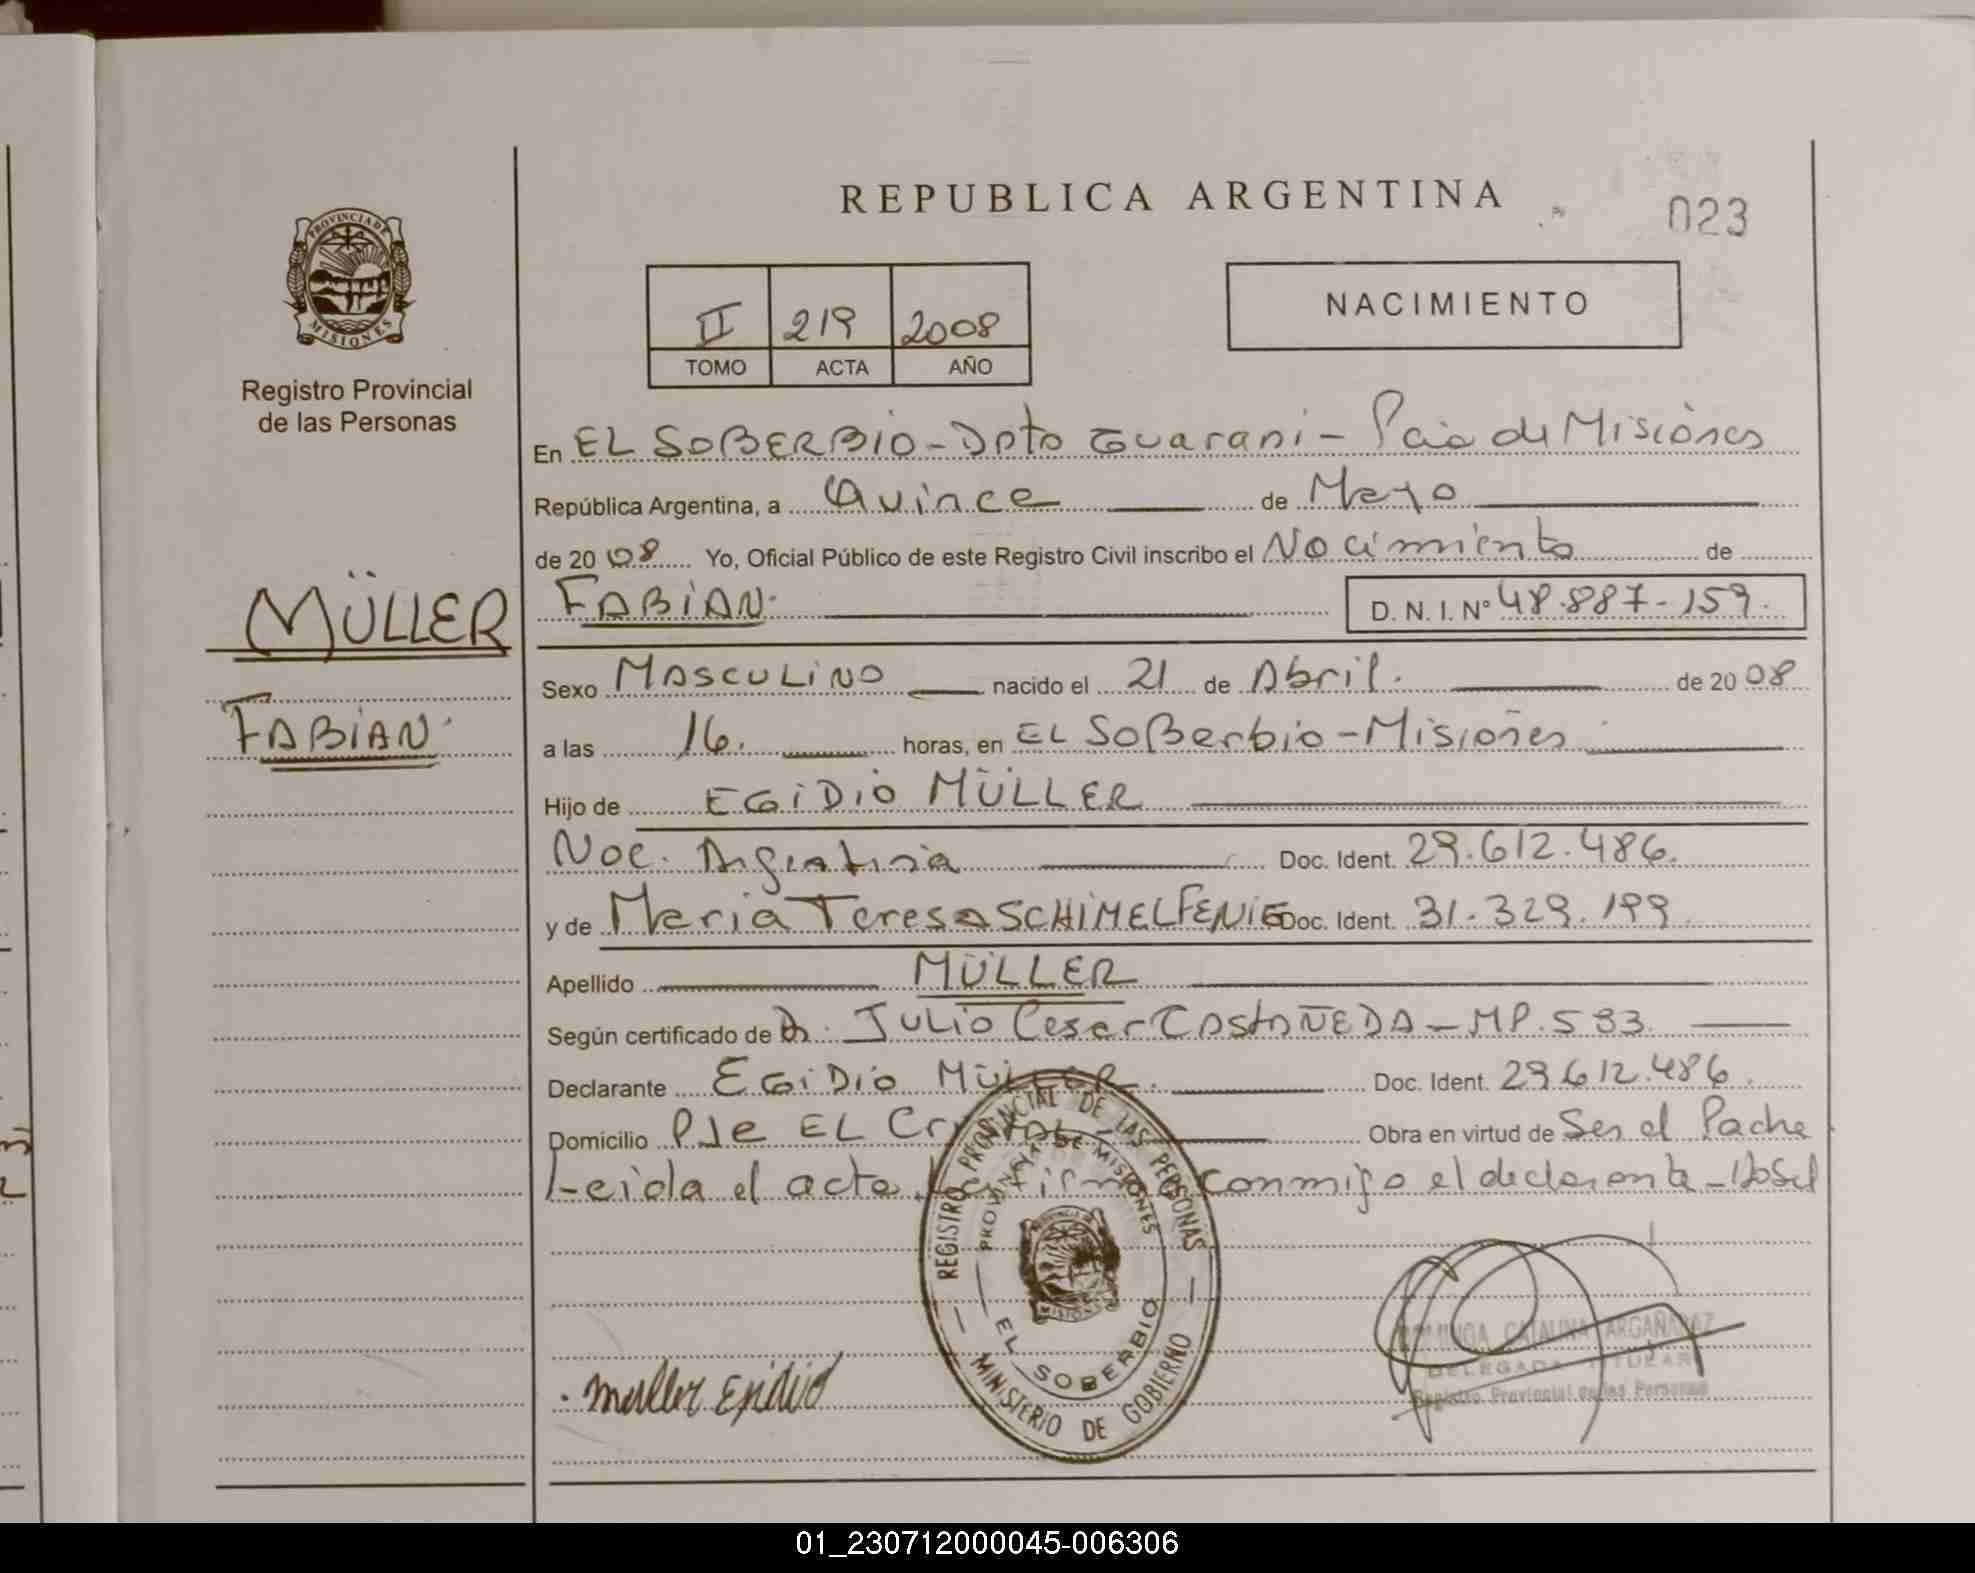 REPUBLICA ARGENTINA
023
PROVINCIA DE
MISIONES
Registro Provincial
de las Personas
II 219 2008
TOMO ACTA AÑO
NACIMIENTO
En EL SOBERBIO - Dpto Guarani - Pcia de Misiones
República Argentina, a Quince de Mayo
de 2008 Yo, Oficial Público de este Registro Civil inscribo el Nacimiento de
MÜLLER
FABIAN
FABIAN. D. N. I. N° 48.887-159.
Sexo MASCULINO nacido el 21 de Abril. de 2008
a las 16. horas, en EL SoBerbio - Misiones
Hijo de EGIDIO MÜLLER
Nac. Argentina Doc. Ident. 29.612.486.
y de Maria Teresa SCHIMELFENIG Doc. Ident. 31.329.199.
Apellido MÜLLER
Según certificado de Dr. JULIO Cesar CASTAÑEDA - MP. 533.
Declarante EGIDIO MÜLLER. Doc. Ident. 29.612.486.
Domicilio Pje EL Obra en virtud de Ser el Padre
Leida el acta la firma conmigo el declarante -
REGISTRO PROVINCIAL DE LAS PERSONAS
PROVINCIA DE MISIONES
MISIONES
EL SOBERBIO
MINISTERIO DE GOBIERNO
Muller Egidio
DOMINGA CATALINA ARGAÑARAZ
DELEGADA TITULAR
Registro Provincial de las Personas
01_230712000045-006306